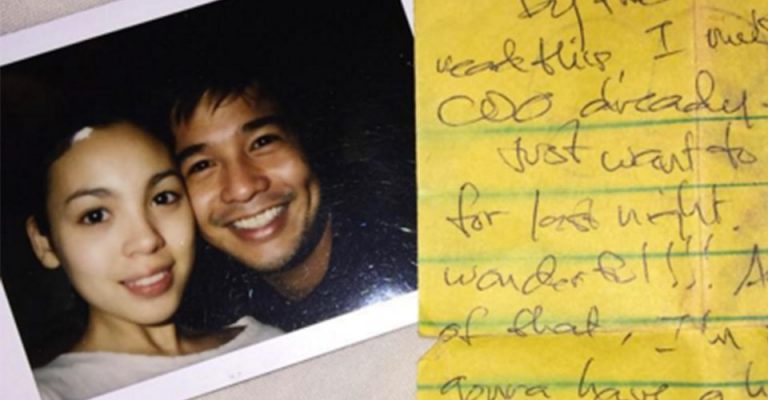 By the
read this, I
CDO already
Just want to
for last night.
wonderful!!!!
of that, I'm
gonna have a